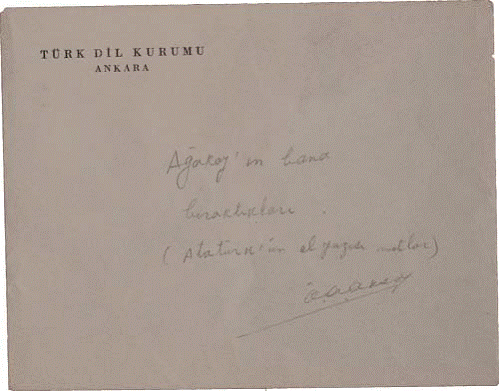 TÜRK DİL KURUMU
ANKARA
Ağakay'ın bana
bıraktıkları.
(Atatürk'ün el yazısı notlar)